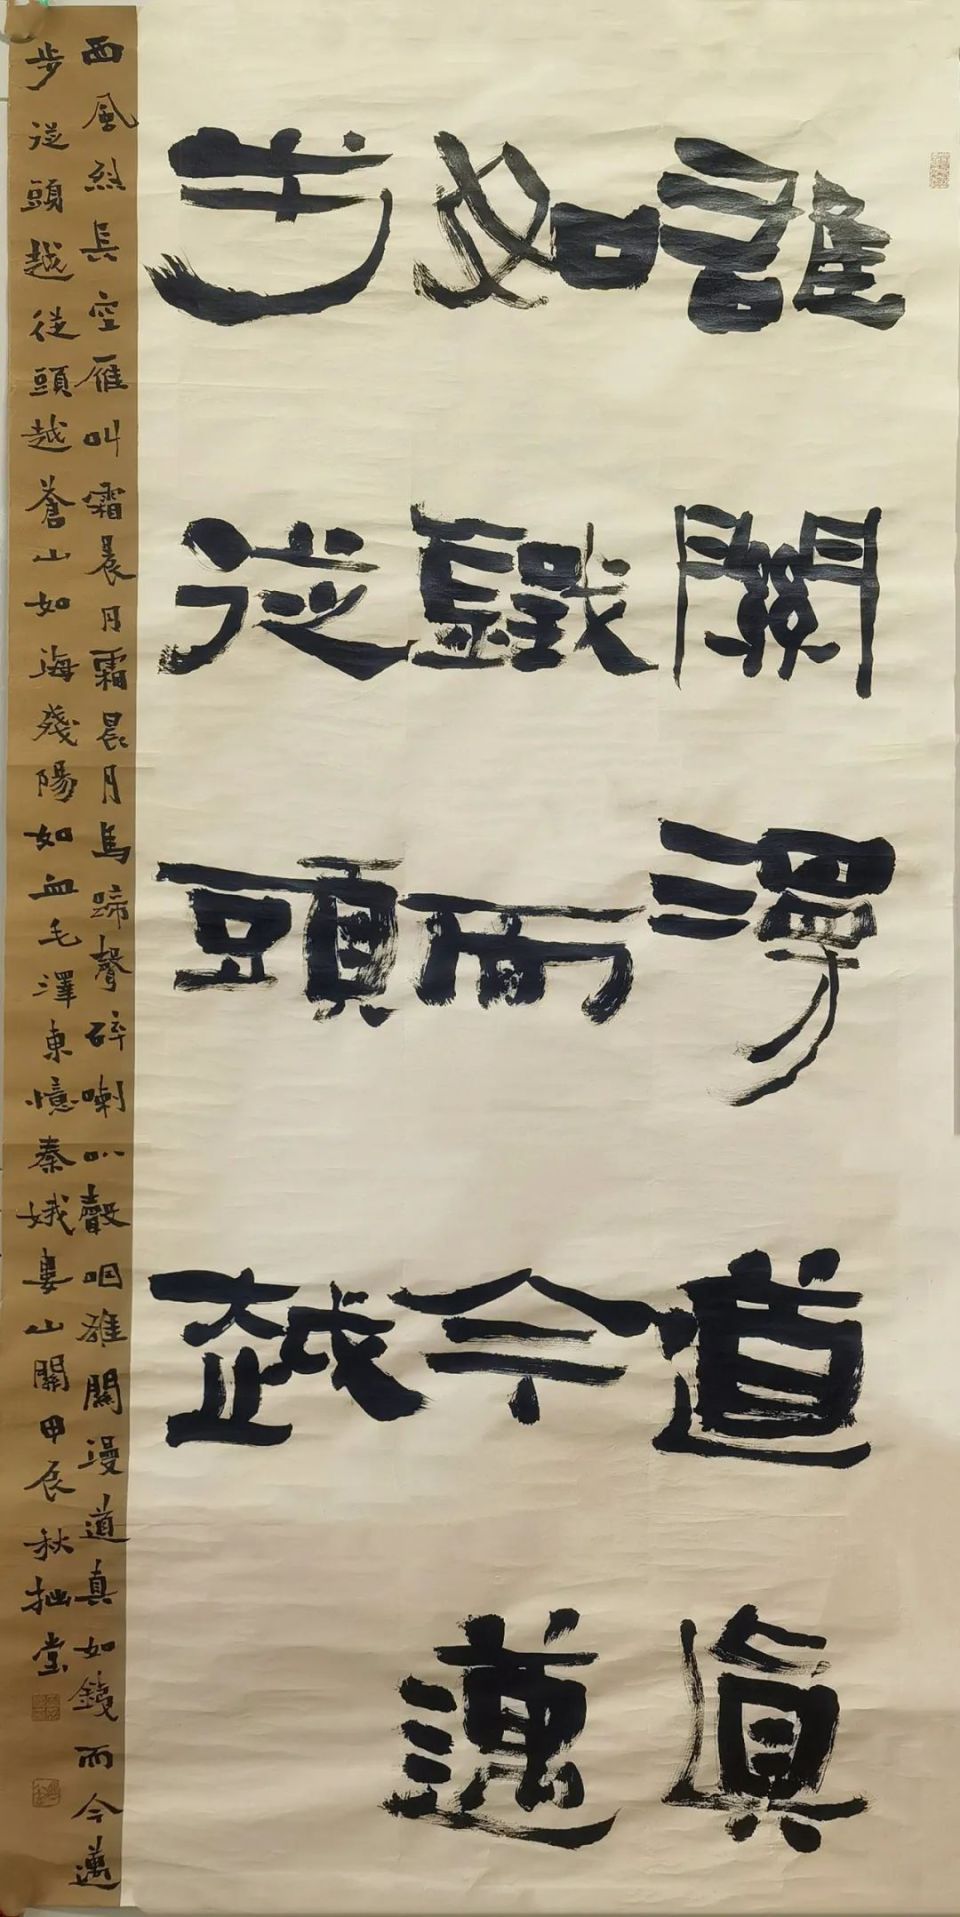 雄關漫道真
如鐵而今邁
步從頭越
西風烈長空雁叫霜晨月霜晨月馬蹄聲碎喇叭聲咽雄關漫道真如鐵而今邁
步從頭越從頭越蒼山如海殘陽如血毛澤東憶秦娥婁山關甲辰秋拙堂